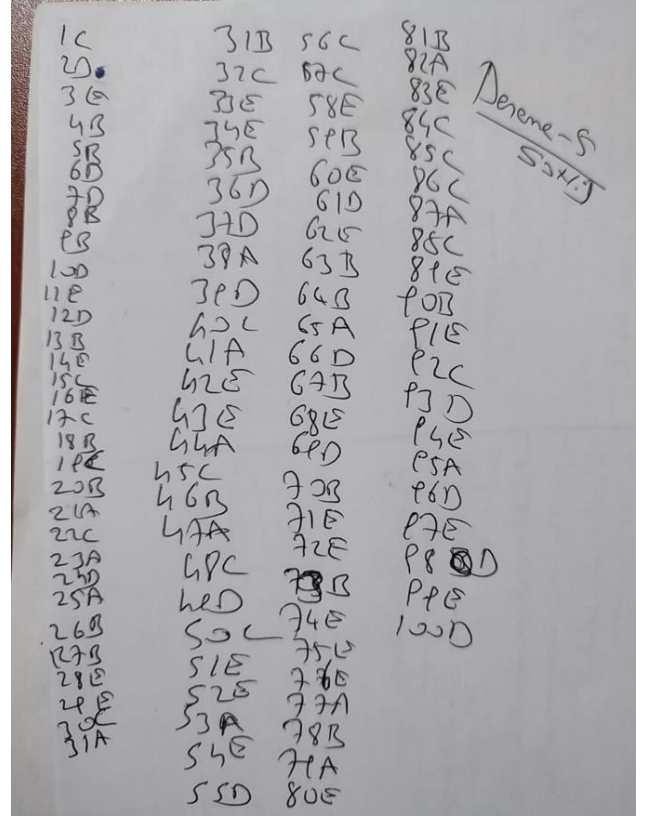 1C
2D
3E
4B
5B
6D
7D
8B
9B
10D
11E
12D
13B
14E
15C
16E
17C
18B
19C
20B
21A
22C
23A
24D
25A
26B
27B
28E
29E
30C
31A
31B
32C
33E
34E
35B
36D
37D
38A
39D
40C
41A
42E
43E
44A
45C
46B
47A
48C
49D
50C
51E
52E
53A
54E
55D
56C
57C
58E
59B
60E
61D
62E
63B
64B
65A
66D
67B
68E
69D
70B
71E
72E
73B
74E
75E
76E
77A
78B
79A
80E
81B
82A
83E
84C
85C
86C
87A
88C
89E
90B
91E
92C
93D
94E
95A
96D
97E
98D
99E
100D
Deneme-5